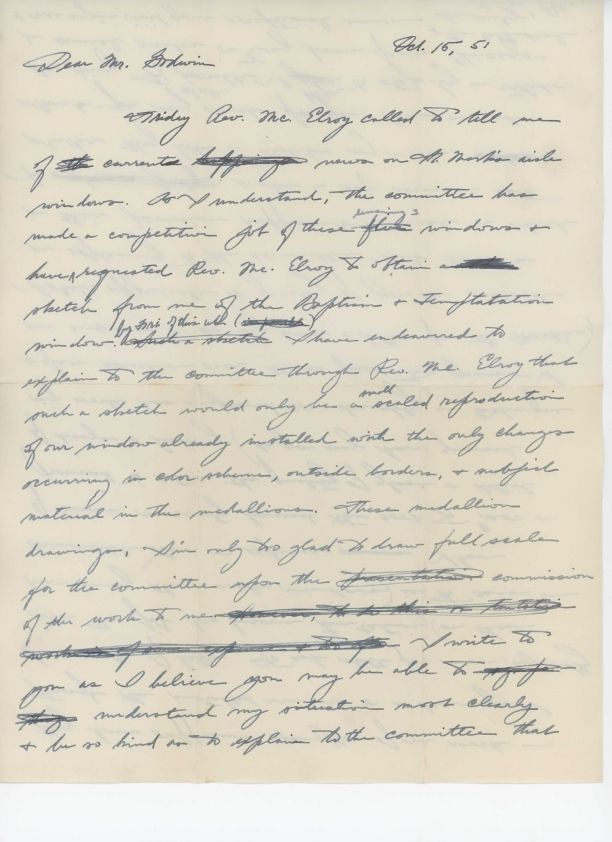 Oct. 15, 51
Dear Mr. Godwin
Friday Rev. Mc. Elroy called to tell me
of the current happenings news on St. Mark's aisle
windows. As I understand, the committee has
remaining
made a competitive job of these five windows &
have requested Rev. Mc. Elroy to obtain a
sketch from me of the Baptism & Temptation
by Fri. of this wk.
window. Such a sketch I have endeavored to
explain to the committee through Rev. Mc. Elroy that
small
such a sketch would only be a scaled reproduction
of our window already installed with the only changes
occurring in color scheme, outside borders, & subject
material in the medallions. These medallion
drawings, I'm only too glad to draw full scale
for the committee upon the presentation commission
of the work to me. However, to do this on tentative
work is of some expense & I write to
you as I believe you may be able to
understand my situation most clearly
& be so kind as to explain to the committee that